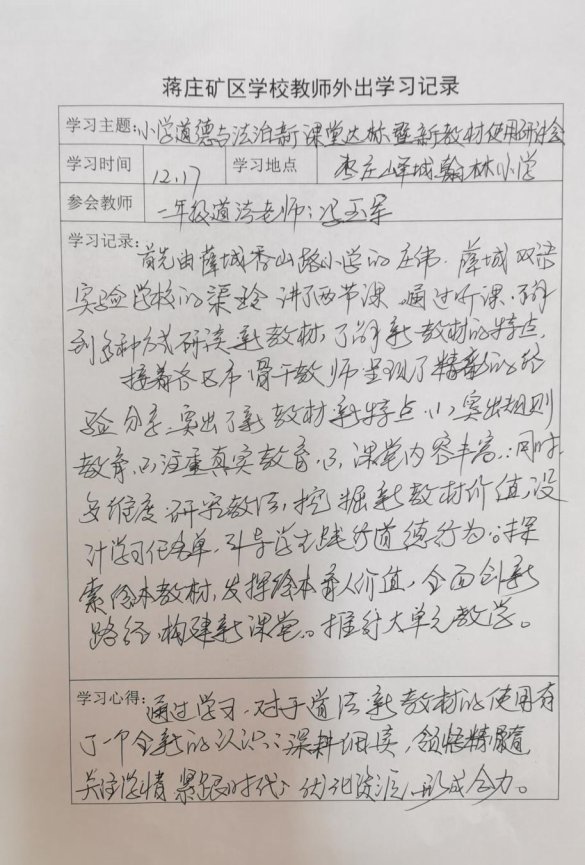 蒋庄矿区学校教师外出学习记录
学习主题:小学道德与法治新课堂达标暨新教材使用研讨会
学习时间 12.17 学习地点 枣庄峄城翰林小学
参会教师 二年级道法老师:冯玉军
学习记录:
首先由薛城香山路小学的庄伟、薛城双语
实验学校的渠玲讲了两节课。通过听课,了解
到多种方式研读新教材,了解新教材的特点。
接着各区市骨干教师呈现了精彩的经
验分享,突出了新教材新特点。(1)突出规则
教育。(2)注重真实教育。(3)课堂内容丰富。同时
多维度研究教法,挖掘新教材价值,设
计学习任务单,引导学生践行道德行为。探
索绘本教材,发挥绘本育人价值,全面创新
路径,构建新课堂。推行大单元教学。
学习心得:通过学习,对于道法新教材的使用有
了一个全新的认识:深耕细读,领悟精髓
关注学情 紧跟时代,优化资源,形成合力。